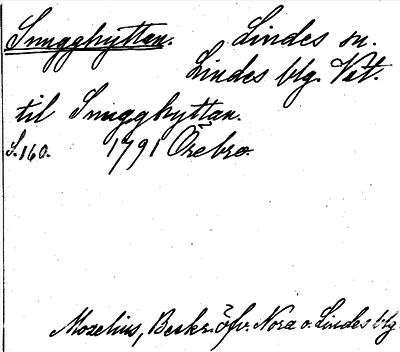 Snugghyttan. Lindes sn.
Lindes blg. Vst.
til Snugghyttan.
S. 160. 1791 Örebro.
Mozelius, Beskr. öfv. Nora o. Lindes blg.